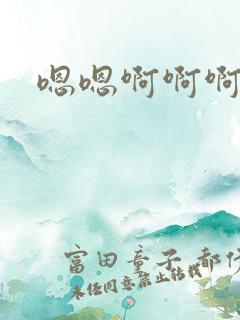 嗯嗯啊啊啊
富田童子 都
未经同意禁止转载